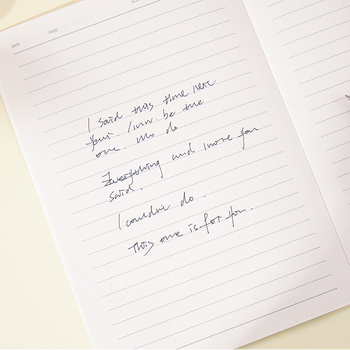 I said this time next
year. I'll be the
one. who do.
Everything and more you
said.
I couldn't do.
This one is for you.